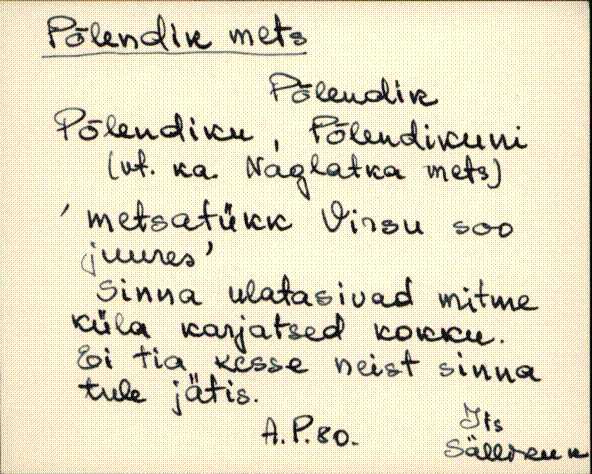 Põlendik mets
Põlendik
Põlendiku, Põlendikuni
(vt. ka Naglatka mets)
'metsatükk Virsu soo
juures'
Sinna ulatasivad mitme
küla karjatsed kokku.
Ei tia, kesse neist sinna
tule jätis.
A.P.80. Its